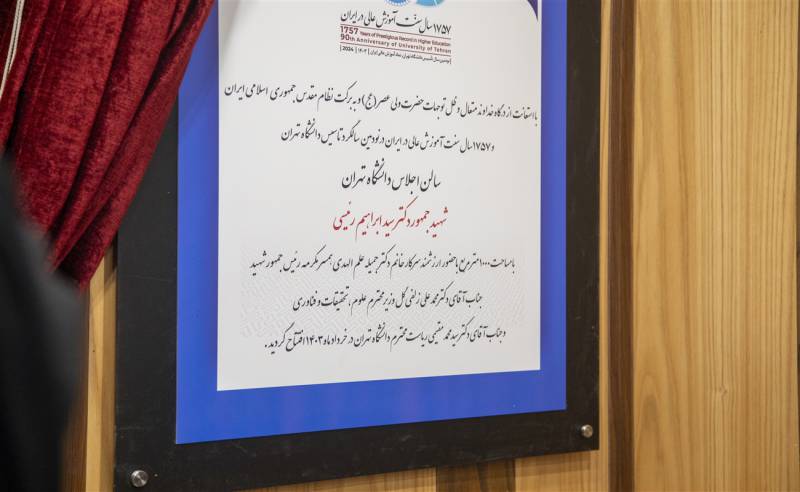 ۱۷۵۷ سال سنت آموزش عالی در ایران
1757 Years of Prestigious Record in Higher Education
90th Anniversary of University of Tehran
2024 | ۱۴۰۳ |
با استعانت از درگاه خداوند متعال و ظل توجهات حضرت ولی عصر (عج) و به برکت نظام مقدس جمهوری اسلامی ایران
و ۱۷۵۷ سال سنت آموزش عالی در ایران در نودمین سالگرد تاسیس دانشگاه تهران
سالن اجلاس دانشگاه تهران
شهید جمهور دکتر سید ابراهیم رئیسی
با مساحت ۱۰۰۰ متر مربع با حضور ارزشمند سرکار خانم دکتر جمیله علم الهدی همسر مکرمه رئیس جمهور شهید
جناب آقای دکتر محمد علی زلفی گل وزیر محترم علوم، تحقیقات و فناوری
و جناب آقای دکتر سید محمد مقیمی ریاست محترم دانشگاه تهران در خرداد ماه ۱۴۰۳ افتتاح گردید.